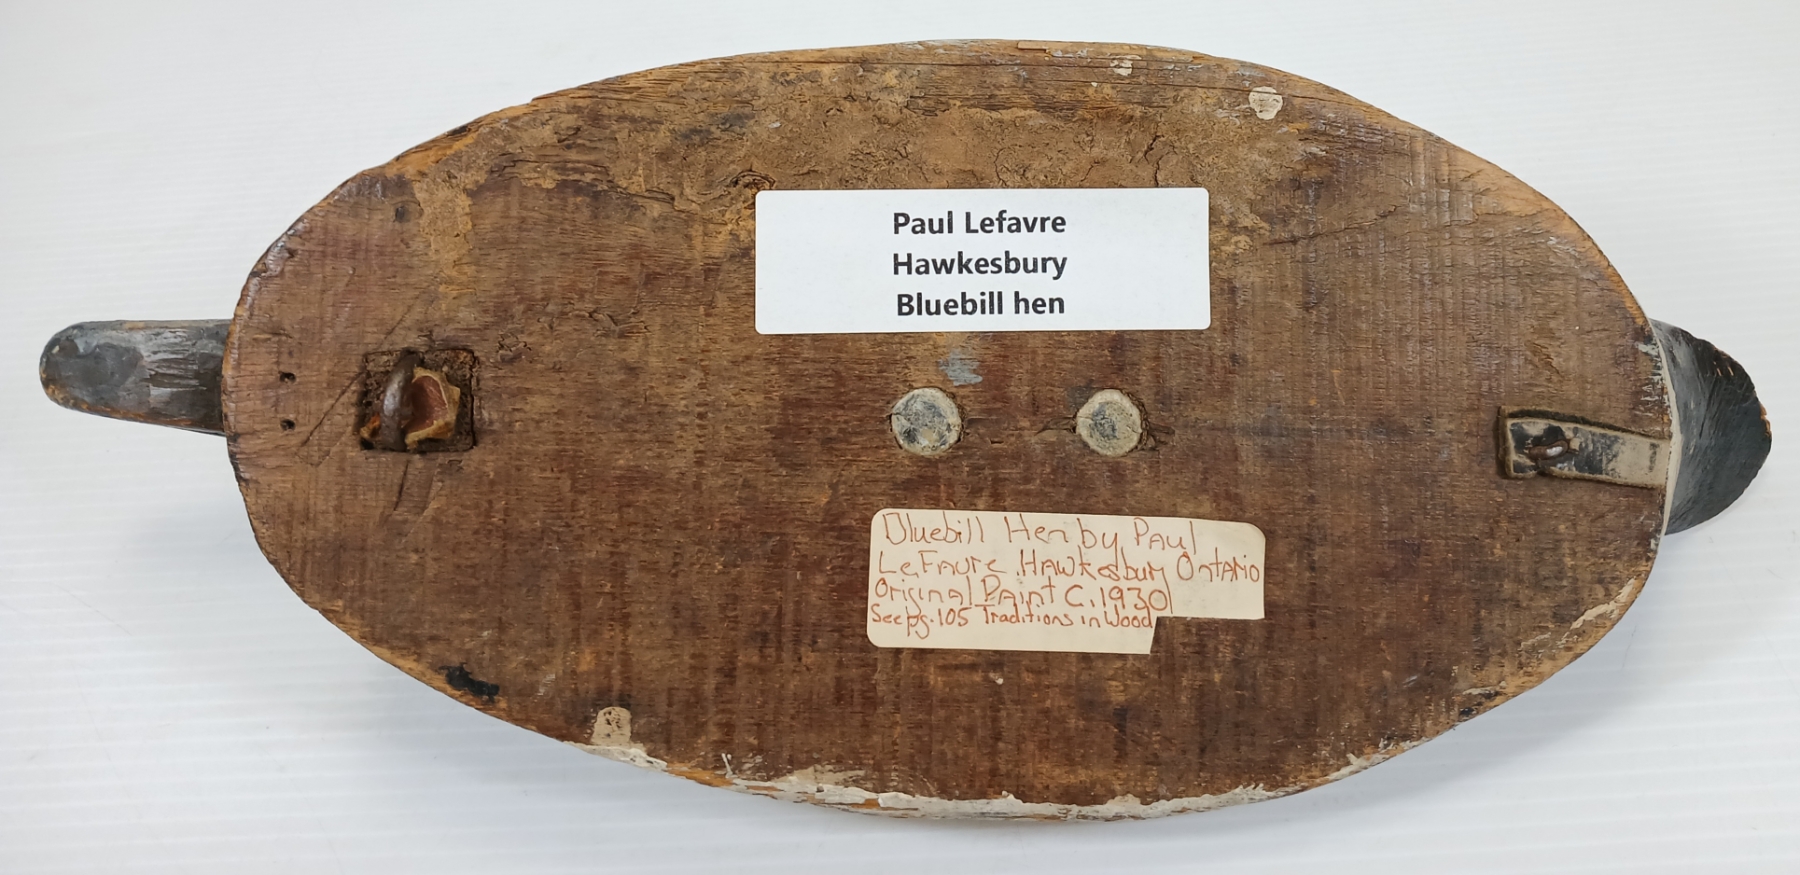 Paul Lefavre
Hawkesbury
Bluebill hen
Bluebill Hen by Paul
LeFavre Hawkesbury Ontario
Original Paint C. 1930
See pg. 105 Traditions in Wood